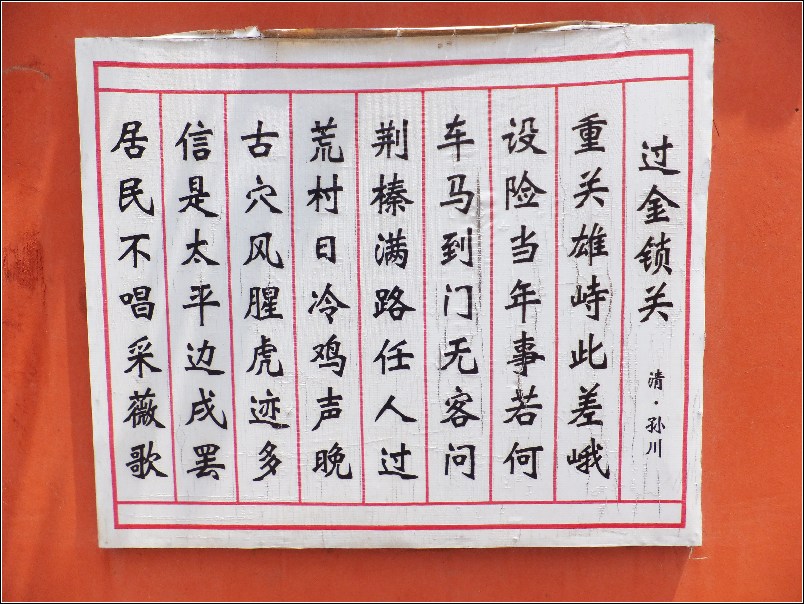 过金锁关
清·孙川
重关雄峙此差峨
设险当年事若何
车马到门无客问
荆榛满路任人过
荒村日冷鸡声晚
古穴风腥虎迹多
信是太平边戍罢
居民不唱采薇歌